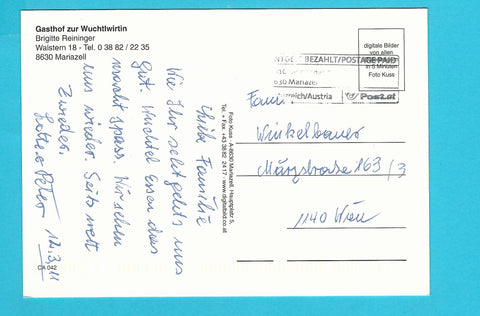 Gasthof zur Wuchtlwirtin
Brigitte Reininger
Walstern 18 - Tel. 0 38 82 / 22 35
8630 Mariazell
Liebe Familie
Wie Ihr seht geht's uns
gut. Wuchtel Essen das
macht Spass. Wir sehen
uns wieder. Seits nett
Zwieder.
Peter 12.3.11
CA 042
Foto Kuss · A-8630 Mariazell, Hauptplatz 5,
Tel. + Fax. +43 38 82 24 17 · www.digitalbild.co.at
digitale Bilder
von allen
in 5 Minuten
Foto Kuss
BEZAHLT/POSTAGE PAID
30 Mariazell
/Austria Post.at
Fam.
Winkelbauer
Märzstrasse 163/3
1140 Wien